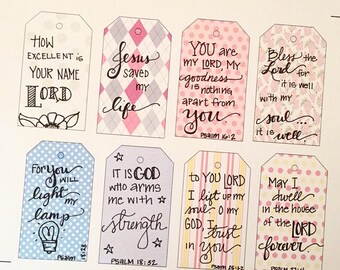 HOW
EXCELLENT is
YOUR NAME
LORD
Jesus
saved
my
life
YOU are
my LORD; MY
goodness
is nothing
apart from
You
PSALM 16:2
Bless the
Lord for
it is well
with my
soul...
it is
well.
For You
will
light my
lamp
PSALM
IT IS GOD
who arms
me with
strength
PSALM 18:32
to YOU LORD
I lift up my
soul O my
GOD, I
trust
in You
PSALM
MAY I
dwell
in the house
of the
LORD
forever
PSALM